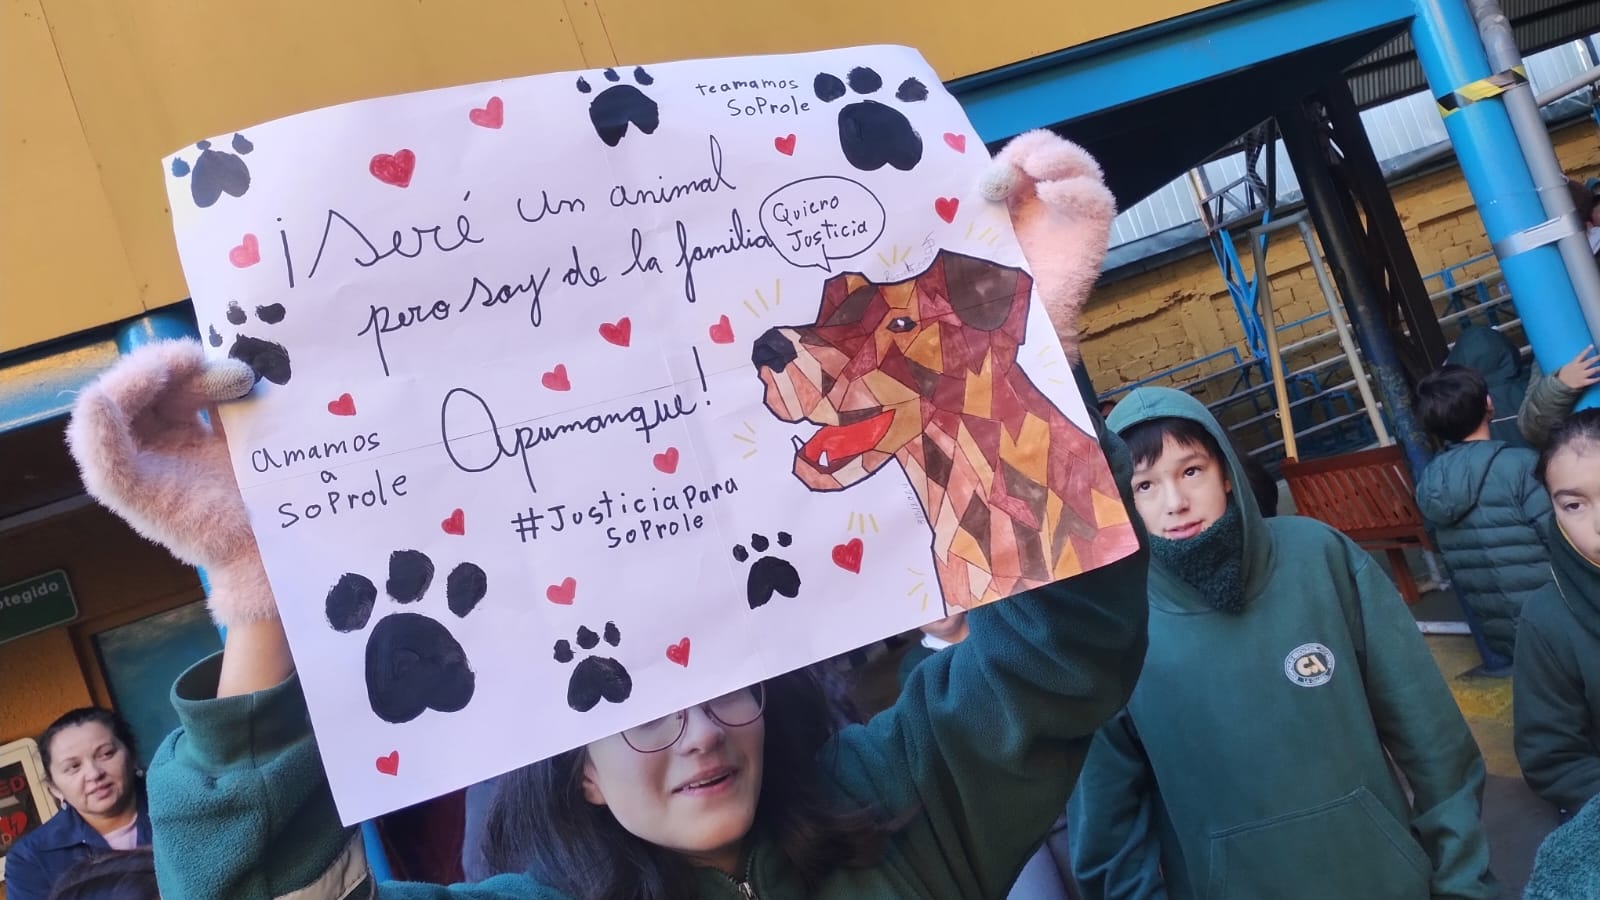 teamamos
SoProle
¡Seré un animal
pero soy de la familia
Quiero
Justicia
Apumanque!
amamos
a
SoProle
#JusticiaPara
SoProle
tegido